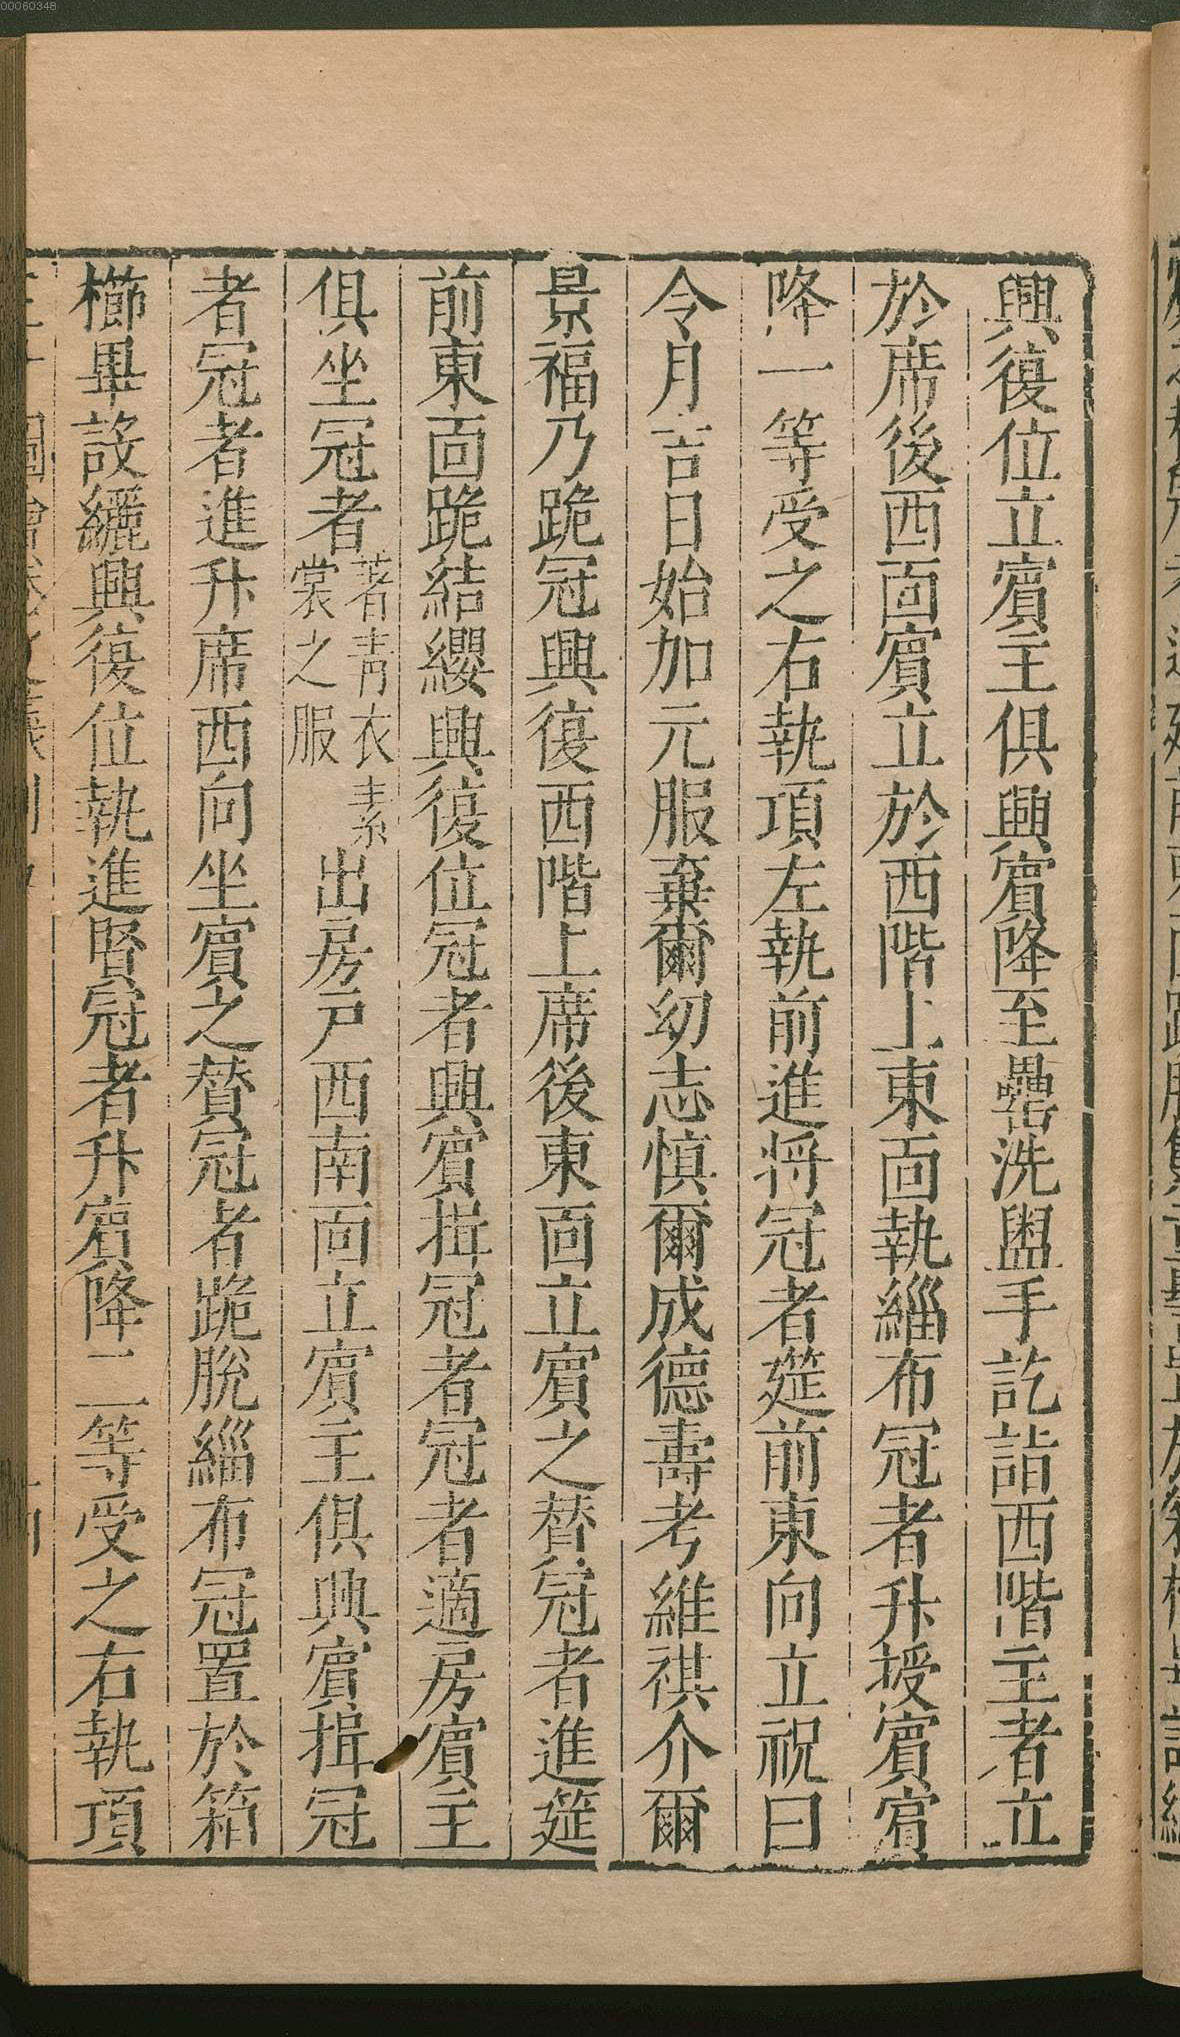 00060348
興復位立賓主俱興賓降至罍洗盥手訖詣西階主者立
於席後西面賓立於西階上東面執緇布冠者升授賓賓
降一等受之右執項左執前進將冠者筵前東向立祝曰
令月吉日始加元服棄爾幼志慎爾成德壽考維祺介爾
景福乃跪冠興復西階上席後東面立賓之替冠者進筵
前東面跪結纓興復位冠者興賓揖冠者冠者適房賓主
俱坐冠者著青衣素裳之服出房戶西南面立賓主俱興賓揖冠
者冠者進升席西向坐賓之賛冠者跪脫緇布冠置於箱
櫛畢設纚興復位執進賢冠者升賓降二等受之右執項